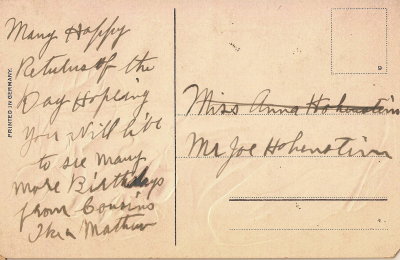 Many Happy
Returns of the
Day Hopeing
You Will live
to see many
more Birthdays
from Cousins
Mathew
PRINTED IN GERMANY.
Miss Anna Hohenstein
Mr Joe Hohenstein